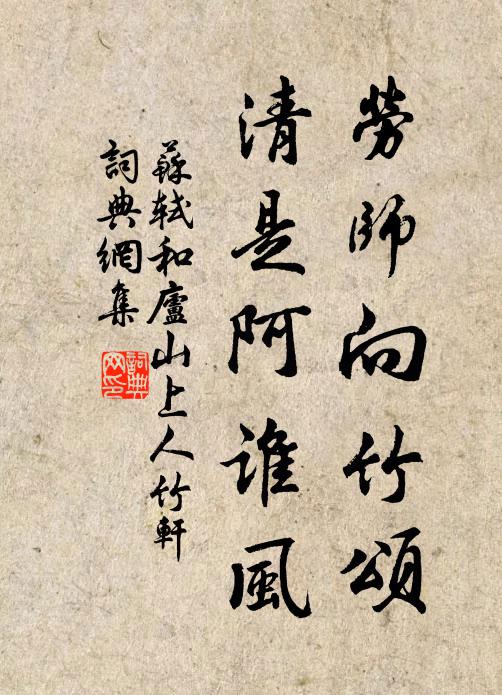 勞師向竹頌
清是阿誰風
蘇軾和廬山上人竹軒
詞典網集
詞典
网印